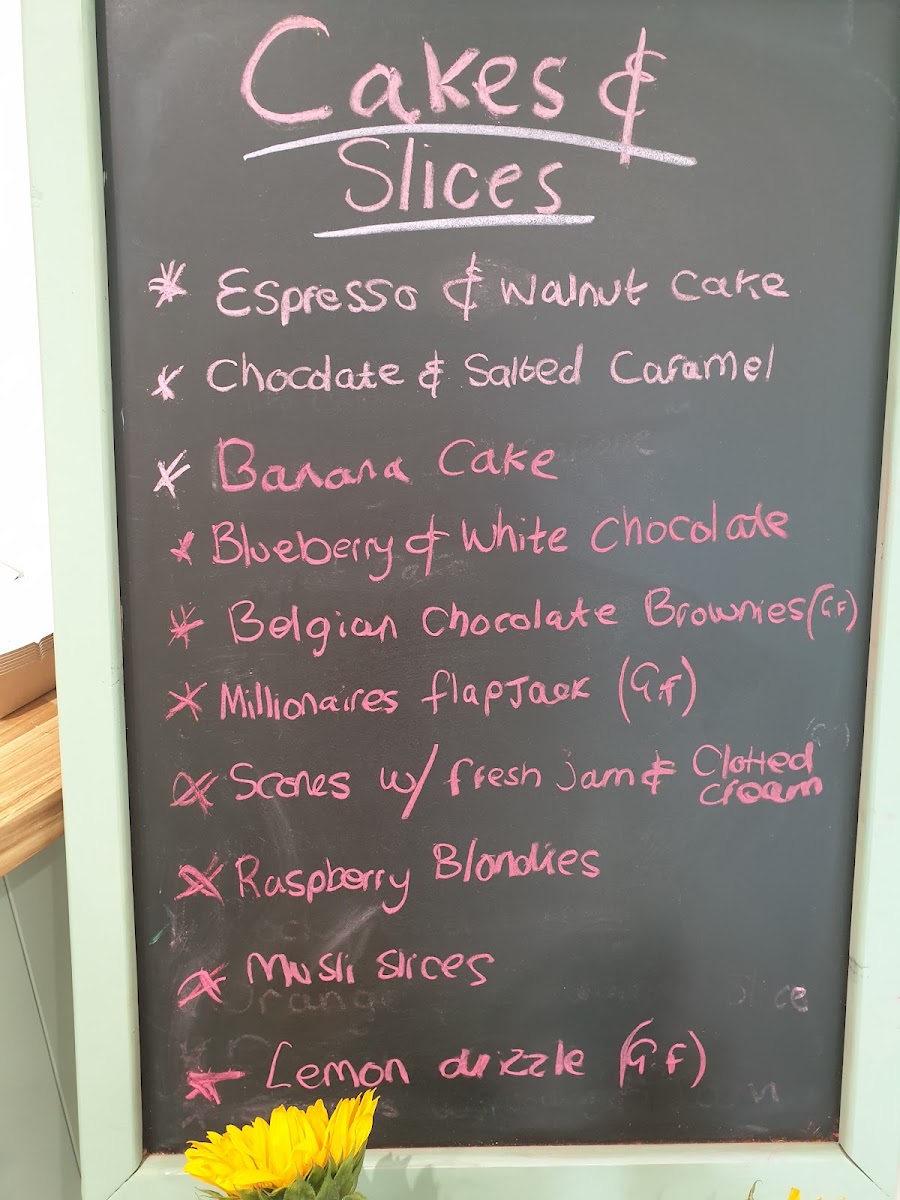 Cakes &
Slices
* Espresso & Walnut Cake
* Chocolate & Salted Caramel
* Banana Cake
* Blueberry & White Chocolate
* Belgian Chocolate Brownies (G.F)
* Millionaires flapJack (G.F)
* Scones w/ fresh jam & Clotted
cream
* Raspberry Blondies
* Musli slices
* Lemon drizzle (G.F)